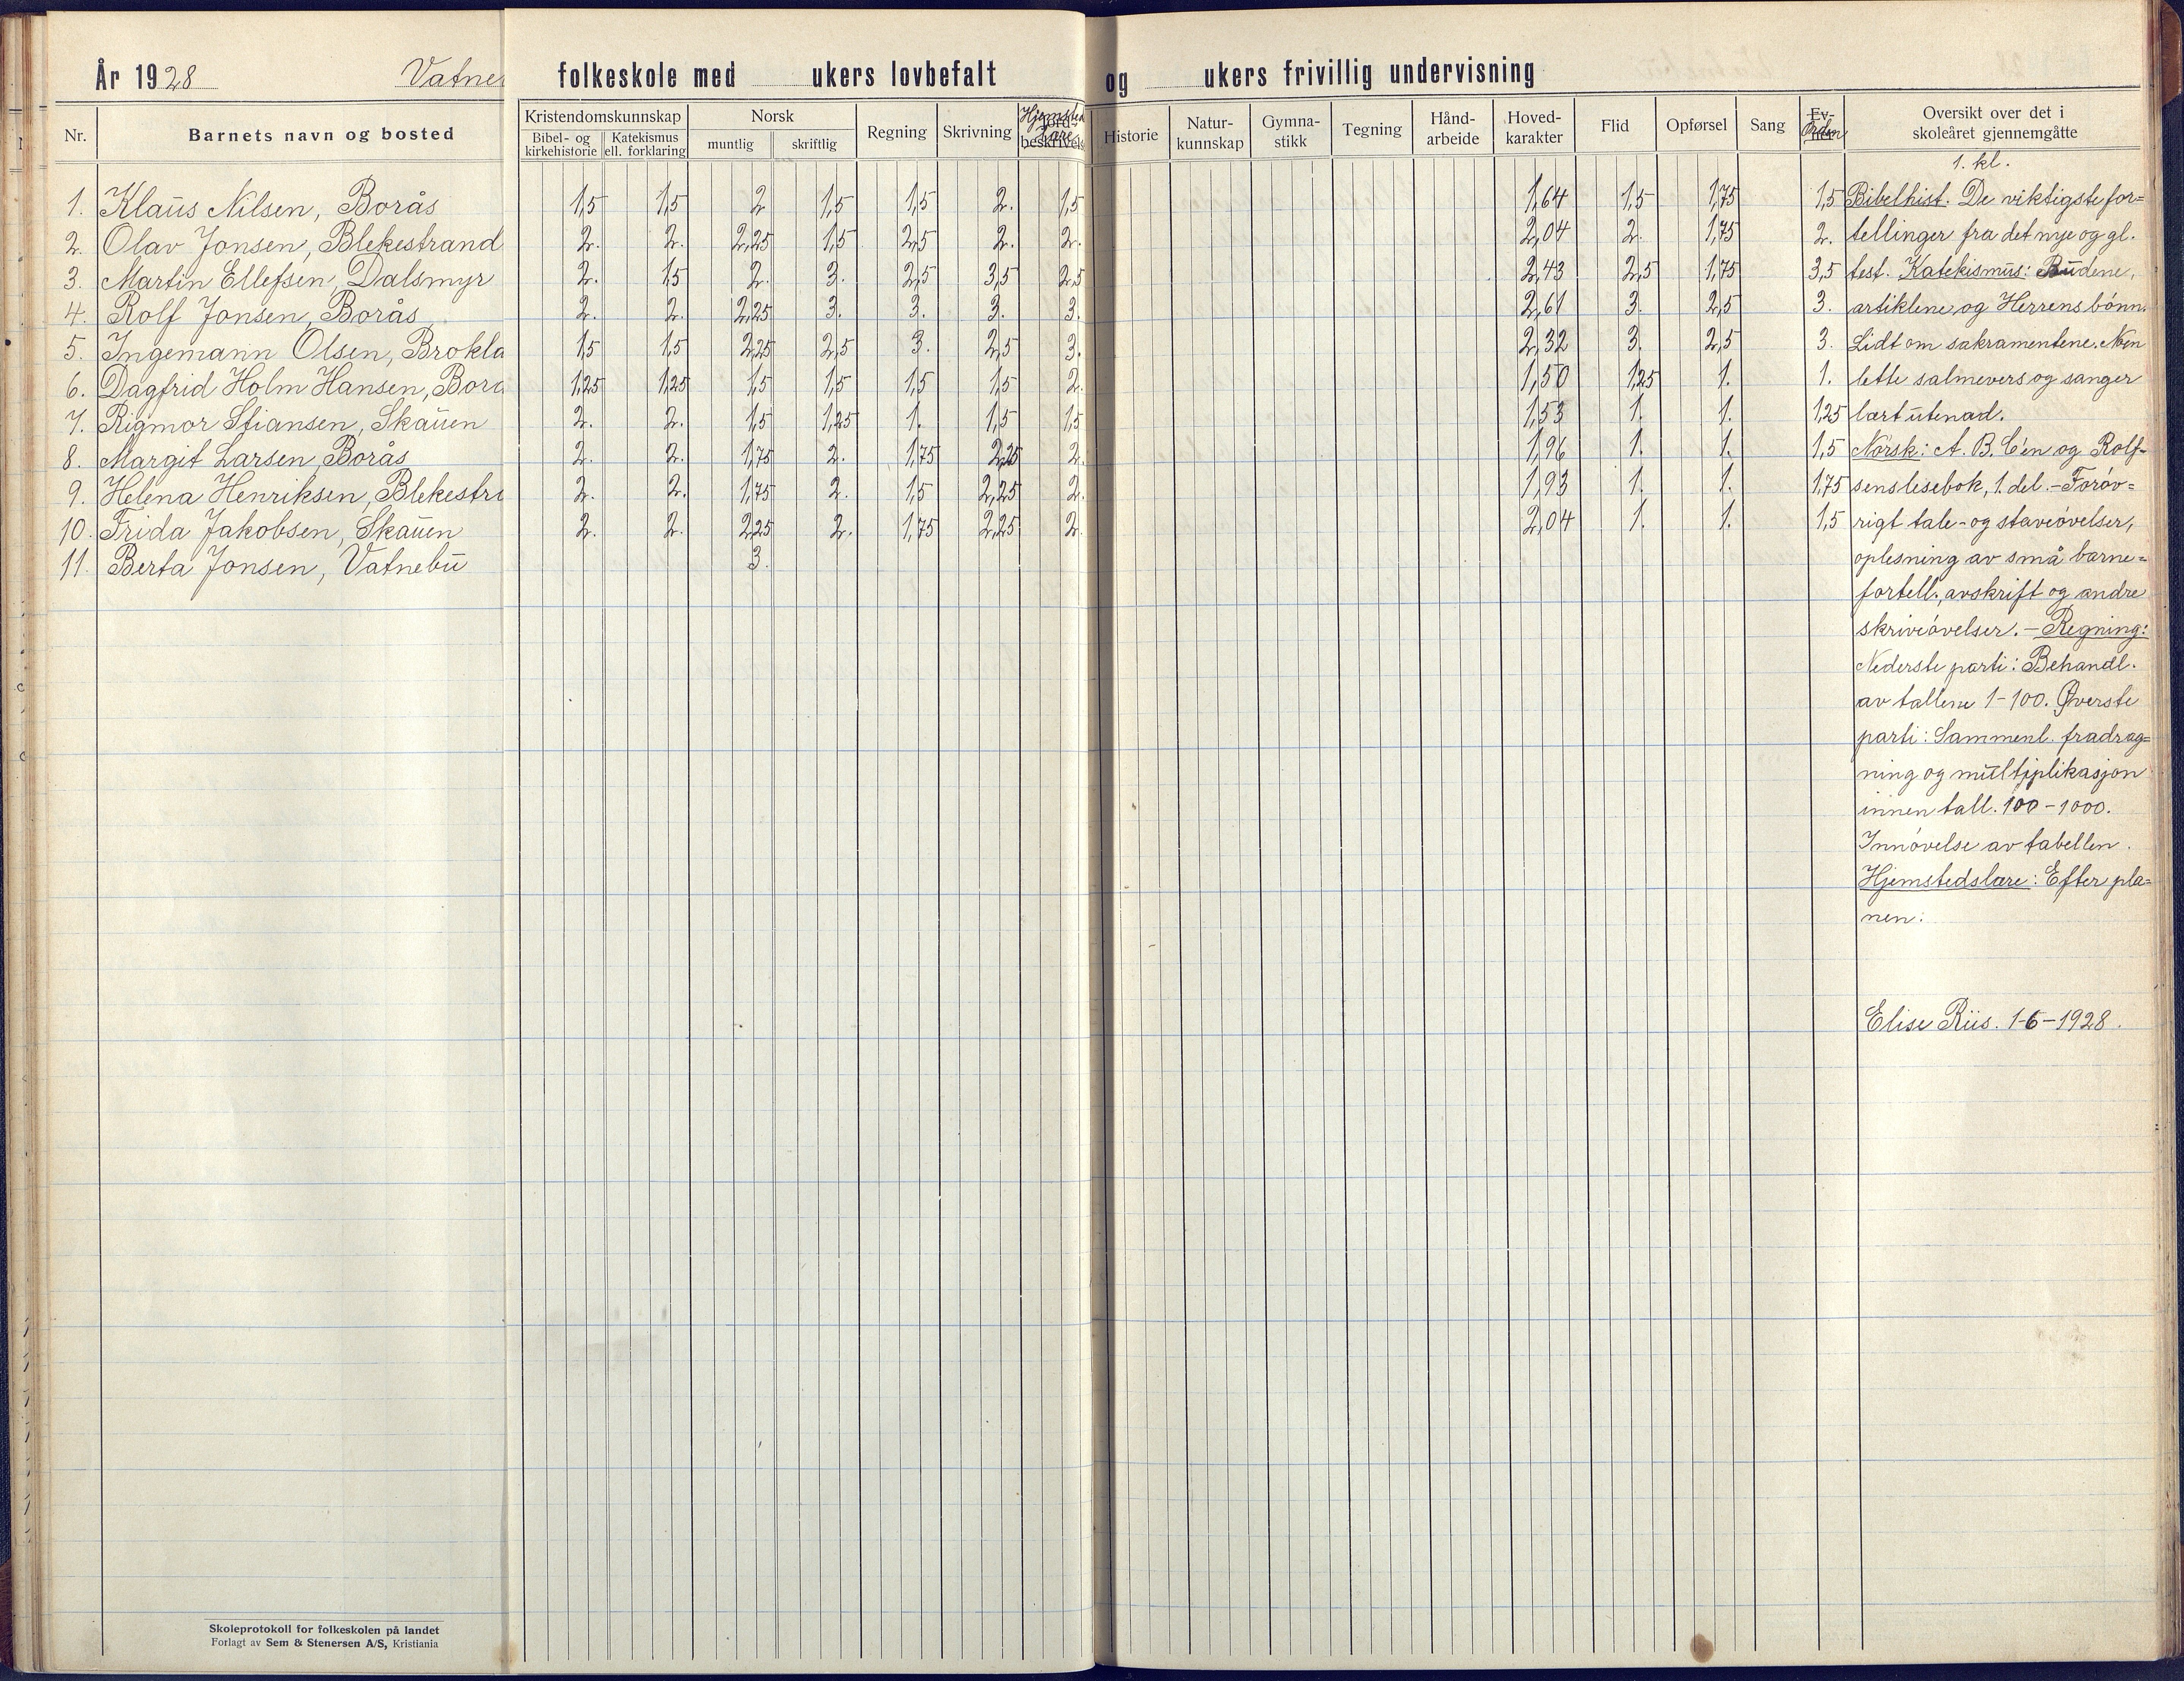 År 1928 Vatne folkeskole med ukers lovbefalt og ukers frivillig undervisning
Nr. Barnets navn og bosted Kristendomskunnskap Bibel- og kirkehistorie Katekismus ell. forklaring Norsk muntlig skriftlig Regning Skrivning Hjemsteds lære Jord- beskrivels Historie Natur- kunnskap Gymna- stikk Tegning Hånd- arbeide Hoved- karakter Flid Opførsel Sang Ev- ner Orden Oversikt over det i skoleåret gjennemgåtte
1. kl.
1. Klaus Nilsen, Borås 1,5 1,5 2 1,5 1,5 2. 1,5 1,64 1,5 1,75 1,5 Bibelhist. De viktigste for=
2. Olav Jonsen, Blekestrand 2. 2. 2,25 1,5 2,5 2. 2. 2,04 2. 1,75 2. tellinger fra det nye og gl.
3. Martin Ellefsen, Dalsmyr 2. 1,5 2. 3. 2,5 3,5 2,5 2,43 2,5 1,75 3,5 test. Katekismus: Budene,
4. Rolf Jonsen, Borås 2. 2. 2,25 3. 3. 3. 3. 2,61 3. 2,5 3. artiklene og Herrens bønn.
5. Ingemann Olsen, Brokla 1,5 1,5 2,25 2,5 3. 2,5 3. 2,32 3. 2,5 3. Lidt om sakramentene. Noen
6. Dagfrid Holm Hansen, Borå 1,25 1,25 1,5 1,5 1,5 1,5 2. 1,50 1,25 1. 1. lette salmevers og sanger
7. Rigmor Stiansen, Skauen 2. 2. 1,5 1,25 1. 1,5 1,5 1,53 1. 1. 1,25 lært utenad.
8. Margit Larsen, Borås 2. 2. 1,75 2. 1,75 2,25 2. 1,96 1. 1. 1,5 Norsk: A. B. C'en og Rolf-
9. Helena Henriksen, Blekestr 2. 2. 1,75 2. 1,5 2,25 2. 1,93 1. 1. 1,75 sens lesebok, 1. del. - Forøv=
10. Frida Jakobsen, Skauen 2. 2. 2,25 2. 1,75 2,25 2. 2,04 1. 1. 1,5 rigt tale- og staveøvelser,
11. Berta Jonsen, Vatnebu 3. oplesning av små barne=
fortell., avskrift og andre
skriveøvelser. - Regning:
Nederste parti: Behandl.
av tallene 1-100. Øverste
parti: Sammenl. fradrag=
ning og multiplikasjon
innen tall. 100-1000.
Innøvelse av tabellen.
Hjemstedslære: Efter pla=
nen:
Elise Riis. 1-6-1928.
Skoleprotokoll for folkeskolen på landet
Forlagt av Sem & Stenersen A/S, Kristiania